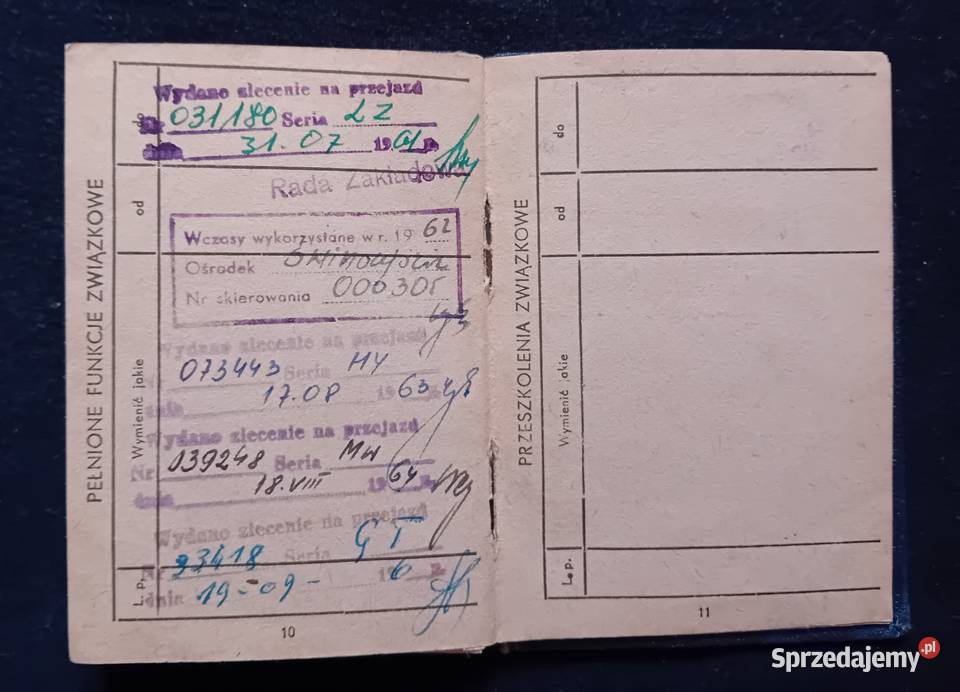 PEŁNIONE FUNKCJE ZWIĄZKOWE
od
Wymienić jakie
L.p.
Wydano zlecenie na przejazd
Nr 031180 Seria ŁZ
dnia 31.07 19 r.
Rada Zakładowa
Wczasy wykorzystane w r. 1962
Ośrodek
Nr skierowania 000305
Wydano zlecenie na przejazd
Nr 073443 Seria HY
dnia 17.08 1963 r.
Wydano zlecenie na przejazd
Nr 039248 Seria Mw
dnia 18.VIII 1964 r.
Wydano zlecenie na przejazd
Nr 93418 Seria GT
dnia 19-09- 196 r.
10
PRZESZKOLENIA ZWIĄZKOWE
do
od
Wymienić jakie
L.p.
11
Sprzedajemy.pl